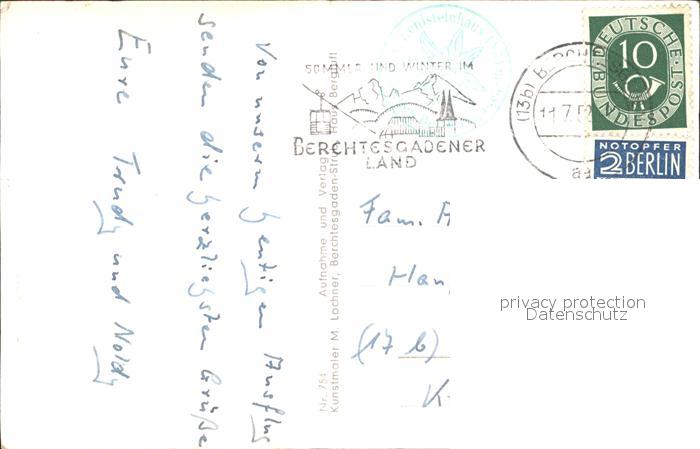 Von unserm heutigen Ausflug
senden die herzlichsten Grüße
Eure Trudy und Noldy
Nr. 754 Aufnahme und Verlag
Kunstmaler M. Lochner, Berchtesgaden-Strub, Haus Bergluft
SOMMER UND WINTER IM
BERCHTESGADENER
LAND
Kehlsteinhaus
(13b) BERCH
11.7.5
DEUTSCHE
BUNDESPOST
10
NOTOPFER
2 BERLIN
Fam.
(17b)
K
privacy protection
Datenschutz